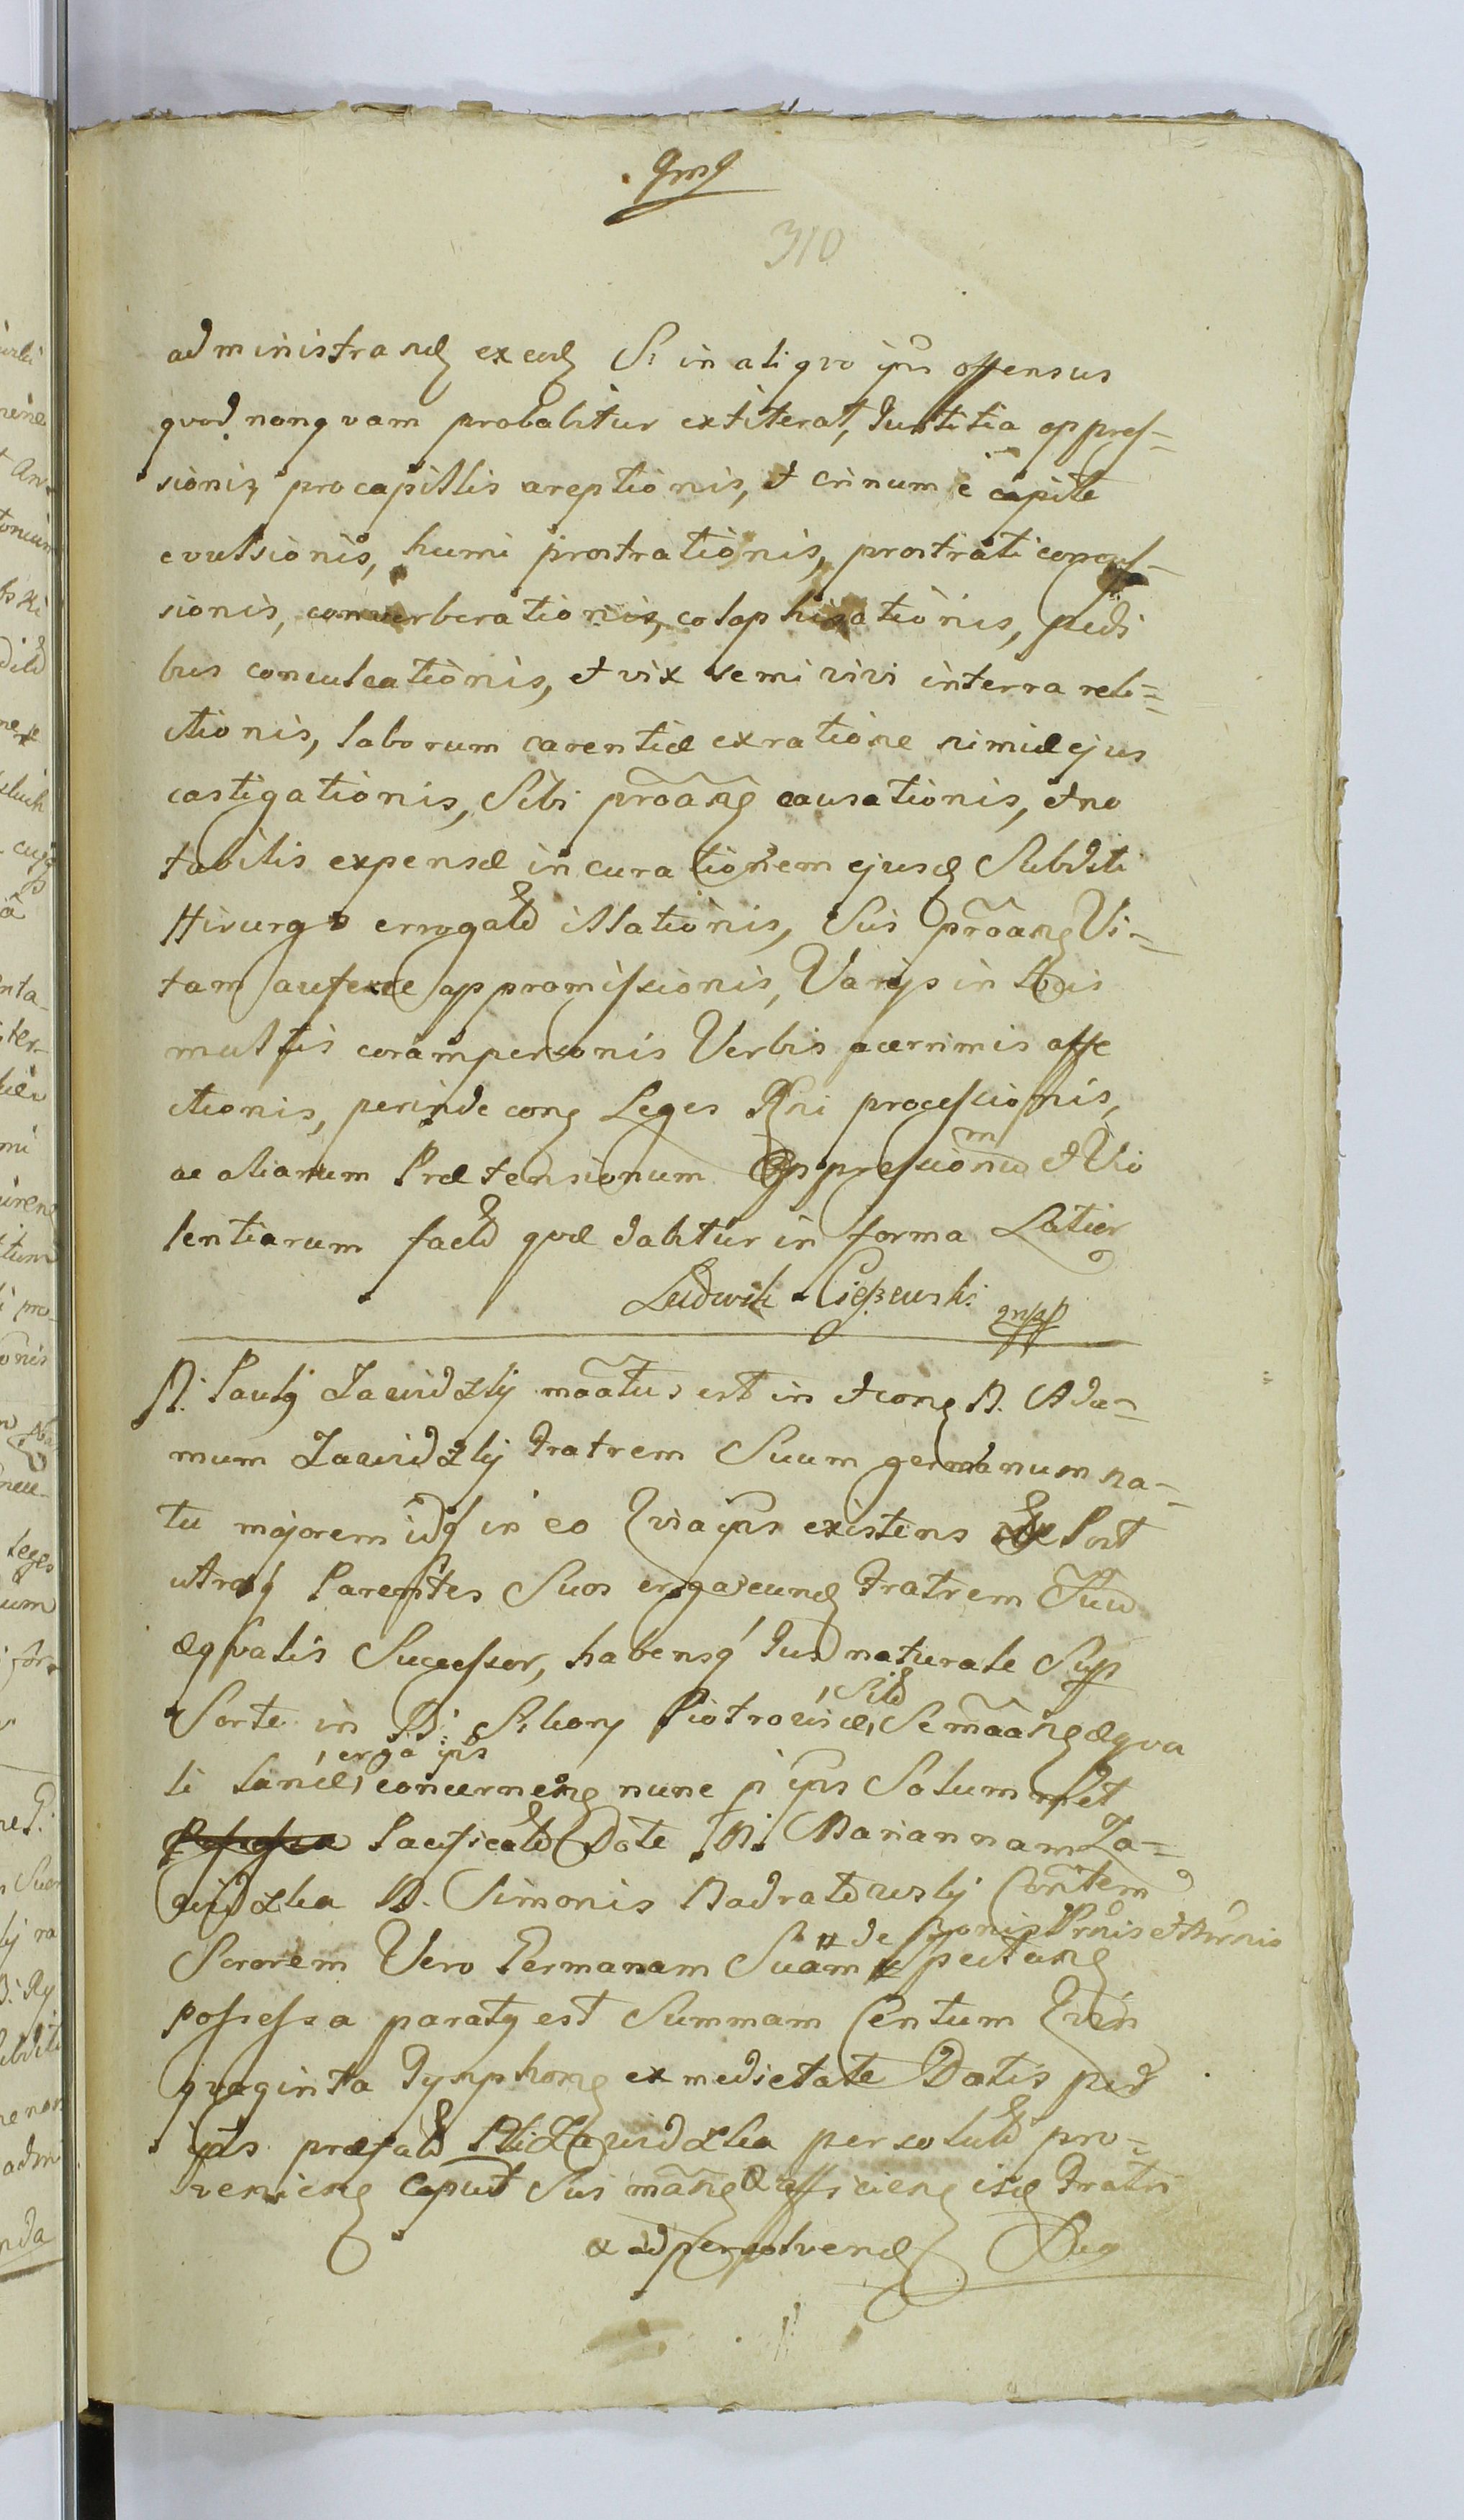 310
administrand exeod Si in aliqvo ips offensus
qvod nonqvam probabitur extiterat, Iustitia oppres=
sionis, pro capillis areptionis, et crinum e capite
evulsionis, humi prostrationis, prostrati concus=
sionis, converberationis, colaphisationis, pedi
bus conculcationis, et vix semivivi in terra reli=
ctionis, laborum carentiæ ex ratione nimiæ ejus
castigationis, Sibi proãng causationis, et no
tabilis expensæ in curationem ejusd Subditi
Hirurgo errogatæ illationis, Sui proãng Vi=
tam auferre appromissionis, Varijs in locis
multis coram personis Verbis acerrimis affe
ctionis, perinde cong Leges Rgni processionis,
ac aliarum Prætensionum Oppressionum et Vio
lentiarum fact qvæ dabitur in forma Latior
Ludwik Cieszewski mpp
N. Paulg Zawidzky maãtus est in et cong N. Ada=
mum Zawidzky Fratrem Suum germanum na=
tu majorem idq in eo Qvia ips existens Post
utrosq Parentes Suos erga eund Fratrem Suu
æqvalis Successor, habensq Jus naturale Sup
Sorte in B: Sikory Piotrowice, Sitt Se maãng æqva
li lance, erga ips concerneng nunc p ips Solummet
Pacificatd Dote N. Mariannam Za=
widzka N. Simonis Modratowsky Contem
Sororem Vero Germanam Suam de bonis Prnis et Mrnis spectang
possessa paratg est Summam Centum Qvin
qvaginta Tymphong ex medietate Dotis per
ips præfatd Zawidzka persolutd pro=
venieng caput Sui mãng afficieng isd Fratri
ad persolvend Seq